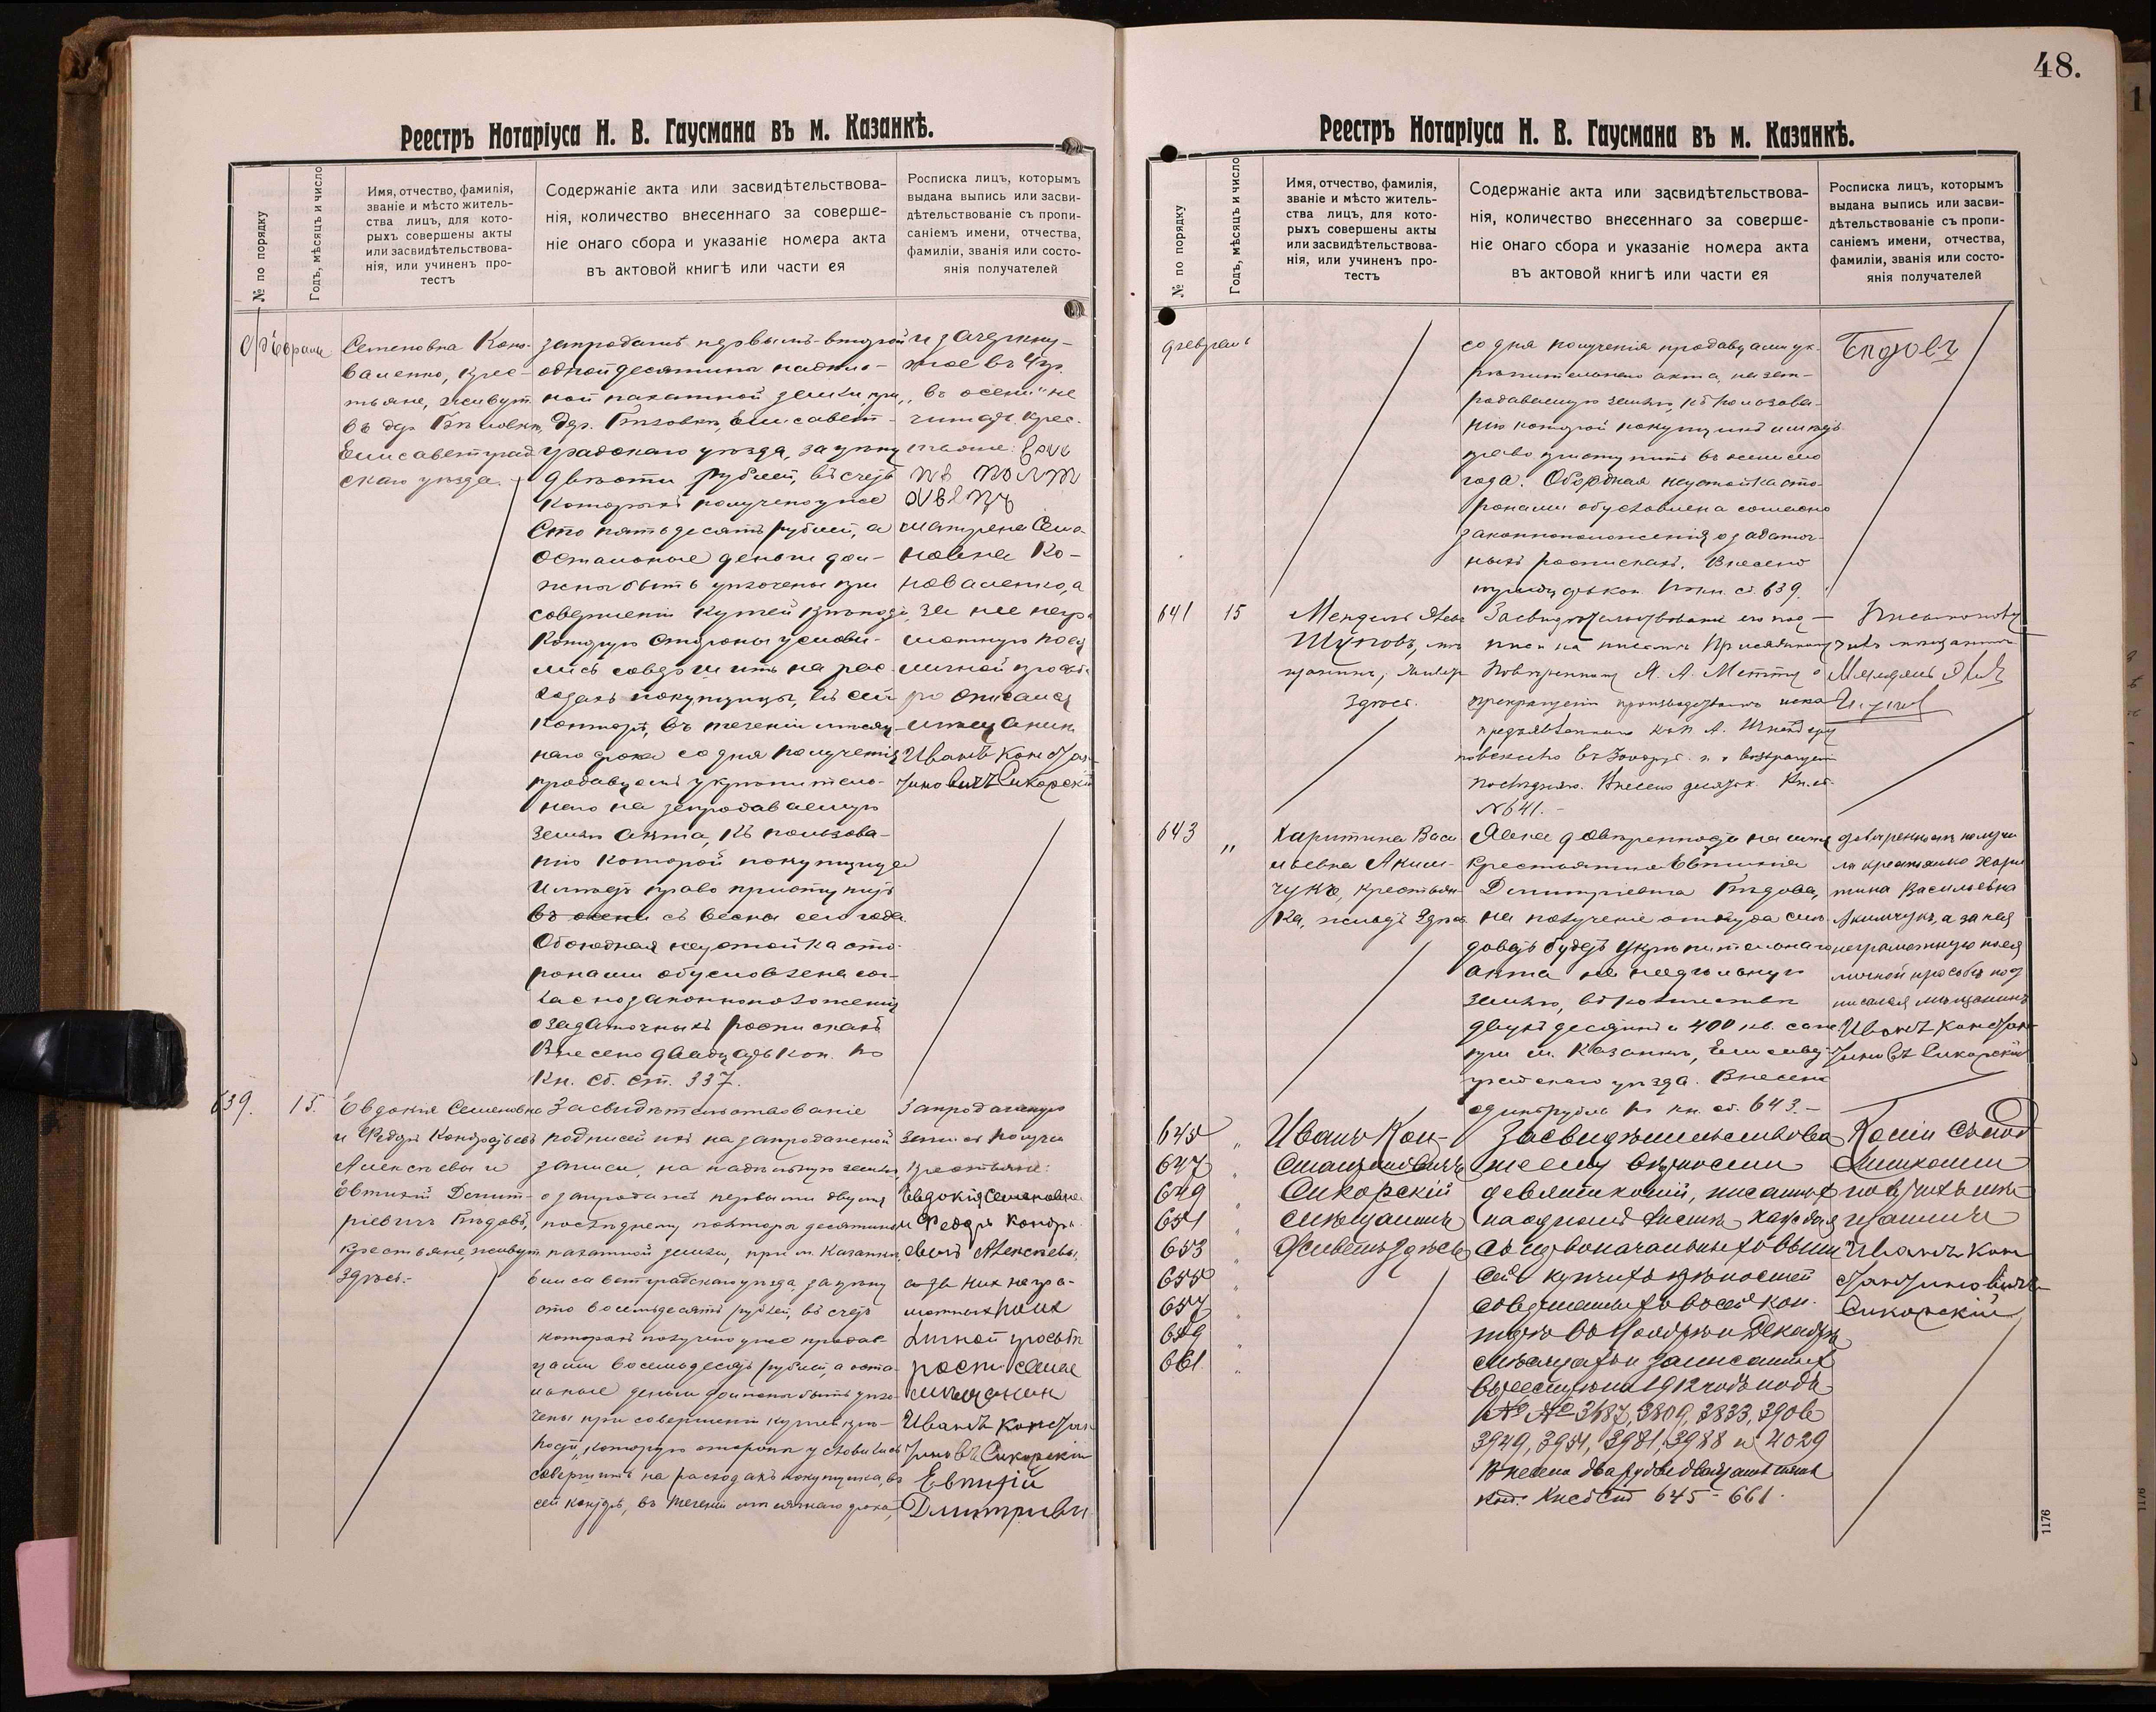 48.
Реестръ Нотаріуса Н. В. Гаусмана въ м. Казанкѣ.
№ по порядку
Годъ, мѣсяцъ и число
Имя, отчество, фамилія,
званіе и мѣсто житель-
ства лицъ, для кото-
рыхъ совершены акты
или засвидѣтельствова-
нія, или учиненъ про-
тестъ
Содержаніе акта или засвидѣтельствова-
нія, количество внесеннаго за соверше-
ніе онаго сбора и указаніе номера акта
въ актовой книгѣ или части ея
Росписка лицъ, которымъ
выдана выпись или засви-
дѣтельствованіе съ пропи-
саніемъ имени, отчества,
фамиліи, званія или состо-
янія получателей
Февраль
Семеновна Коно-
валенко, крес-
тьяне, живут.
въ дер.
Елисаветград
скаго уѣзда.
запродажѣ первымъ-второй
одной десятины надѣль-
ной пахатной земли, при
дер. Елисавет-
градскаго уѣзда, за цѣну
двѣсти рублей, въ счетъ
которыхъ получено уже
сто пятьдесятъ рублей, а
остальные деньги дол-
жны быть уплочены при
совершеніи купчей крѣпости,
которую стороны услови-
лись совершить на рас-
ходахъ покупщицы, въ сей
конторѣ, въ теченіи мѣсяч-
наго срока со дня полученія
продавцемъ укрѣпитель-
наго на запродаваемую
землю акта, къ пользова-
нію которой покупщица
имѣетъ право приступить
въ осени съ весны сего года.
Обоюдная неустойка сто-
ронами обусловлена сог-
ласно законноположенія
о задаточныхъ роспискахъ
Внесено двадцать коп. по
Кн. сб. ст. 337.
и зачеркну-
тое въ
„въ осени" не
читать. Крес-
тьяне:
Матрена Семе-
новна Ко-
новаленко, а
за нее негра-
мотную по ея
личной прось-
бѣ росписался
мѣщанинъ
Иванъ Констан-
тиновичъ Сикорскій
639. 15.
Евдокія Семеновна
и Федоръ Кондратьевъ
Алексѣевы и
Евтихій Дмит-
ріевичъ Бѣдовъ,
крестьяне, живут.
здѣсь.-
Засвидѣтельствованіе
подписей ихъ на запродажной
записи, на надѣльную землю,
о запродажѣ первыми двумя
послѣднему полторы десятины
пахатной земли, при м. Казанкѣ,
Елисаветградскаго уѣзда, за цѣну
сто восемьдесятъ рублей, въ счетъ
которыхъ получено уже продав-
цами восемьдесятъ рублей, а оста-
льные деньги должны быть упло-
чены при совершеніи купчей крѣ-
пости, которую стороны условились
совершить на расходахъ покупщика, въ
сей конторѣ, въ теченіи мѣсячнаго срока,
Запродажную
запись получи
крестьяне:
Евдокія Семеновна
и Федоръ Кондра-
евичъ Алексѣевы,
а за них негра-
мотных по их
личной просьбѣ
росписался
мѣщанин
Иванъ Констан
тиновъ Сикорскій
Евтихій
Дмитріеви
Реестръ Нотаріуса Н. В. Гаусмана въ м. Казанкѣ.
№ по порядку
Годъ, мѣсяцъ и число
Имя, отчество, фамилія,
званіе и мѣсто житель-
ства лицъ, для кото-
рыхъ совершены акты
или засвидѣтельствова-
нія, или учиненъ про-
тестъ
Содержаніе акта или засвидѣтельствова-
нія, количество внесеннаго за соверше-
ніе онаго сбора и указаніе номера акта
въ актовой книгѣ или части ея
Росписка лицъ, которымъ
выдана выпись или засви-
дѣтельствованіе съ пропи-
саніемъ имени, отчества,
фамиліи, званія или состо-
янія получателей
февраль
со дня полученія продавцами ук-
рѣпительнаго акта, на зап-
родаваемую землю, къ пользова-
нію которой покупщикъ имѣетъ
право приступить въ осени сего
года. Обоюдная неустойка сто-
ронами обусловлена согласно
законноположенія о задаточ-
ныхъ роспискахъ. Внесено
коп. По кн. сб. 639.
Бѣдовъ
641 15
Мендель
Шуповъ, мѣ-
щанинъ, живет
здѣсь.
Засвидѣтельствованіе его под-
писи на письмѣ Присяжному
Повѣренному Я. А. о
прекращеніи производствомъ иска
предъявленнаго къ А.
и возвращеніи
послѣдняго. Внесено десять к. Кн. сб.
№ 641.-
Мендель
643 „
Харитина Васи
льевна Аким-
чукъ, крестьян-
ка, живетъ здѣсь.
Явка довѣренности на имя
крестьянина Евтихія
Дмитріевича Бѣдова,
на полученіе откуда слѣ-
довать будетъ укрѣпительнаго
акта на надѣльную
землю, въ количествѣ
двухъ десятинъ и 400 кв. саж.
при м. Казанкѣ, Елисавет-
градскаго уѣзда. Внесенъ
одинъ рубль по кн. сб. 643.-
довѣренность получи
ла крестьянка Хари
тина Васильевна
Акимчукъ, а за нея
неграмотную по ея
личной просьбѣ под
писался мѣщанинъ
Иванъ Констан-
тиновъ Сикорскій
645 „
647 „
649 „
651 „
653 „
655 „
657 „
659 „
661. „
Иванъ Кон-
стантиновичъ
Сикорскій
мѣщанинъ
живетъ здѣсь
Засвидѣтельствова
девяти копій, писанныхъ
на одномъ листѣ каждая
съ первоначальныхъ выпи
сей купчихъ крѣпостей
совершенныхъ въ сей кон-
торѣ въ Ноябрѣ и Декабрѣ
мѣсяцахъ и записанныхъ
въ реестръ на 1912 годъ подъ
№ № 3487, 3809, 3833, 3906
3949, 3954, 3981, 3988 и 4029
Внесено два рубля двадцать
коп. Кн сб Ст 645 - 661.
Копіи съ под
линными
получилъ мѣ-
щанинъ
Иванъ Кон
стантиновичъ
Сикорскій
1176